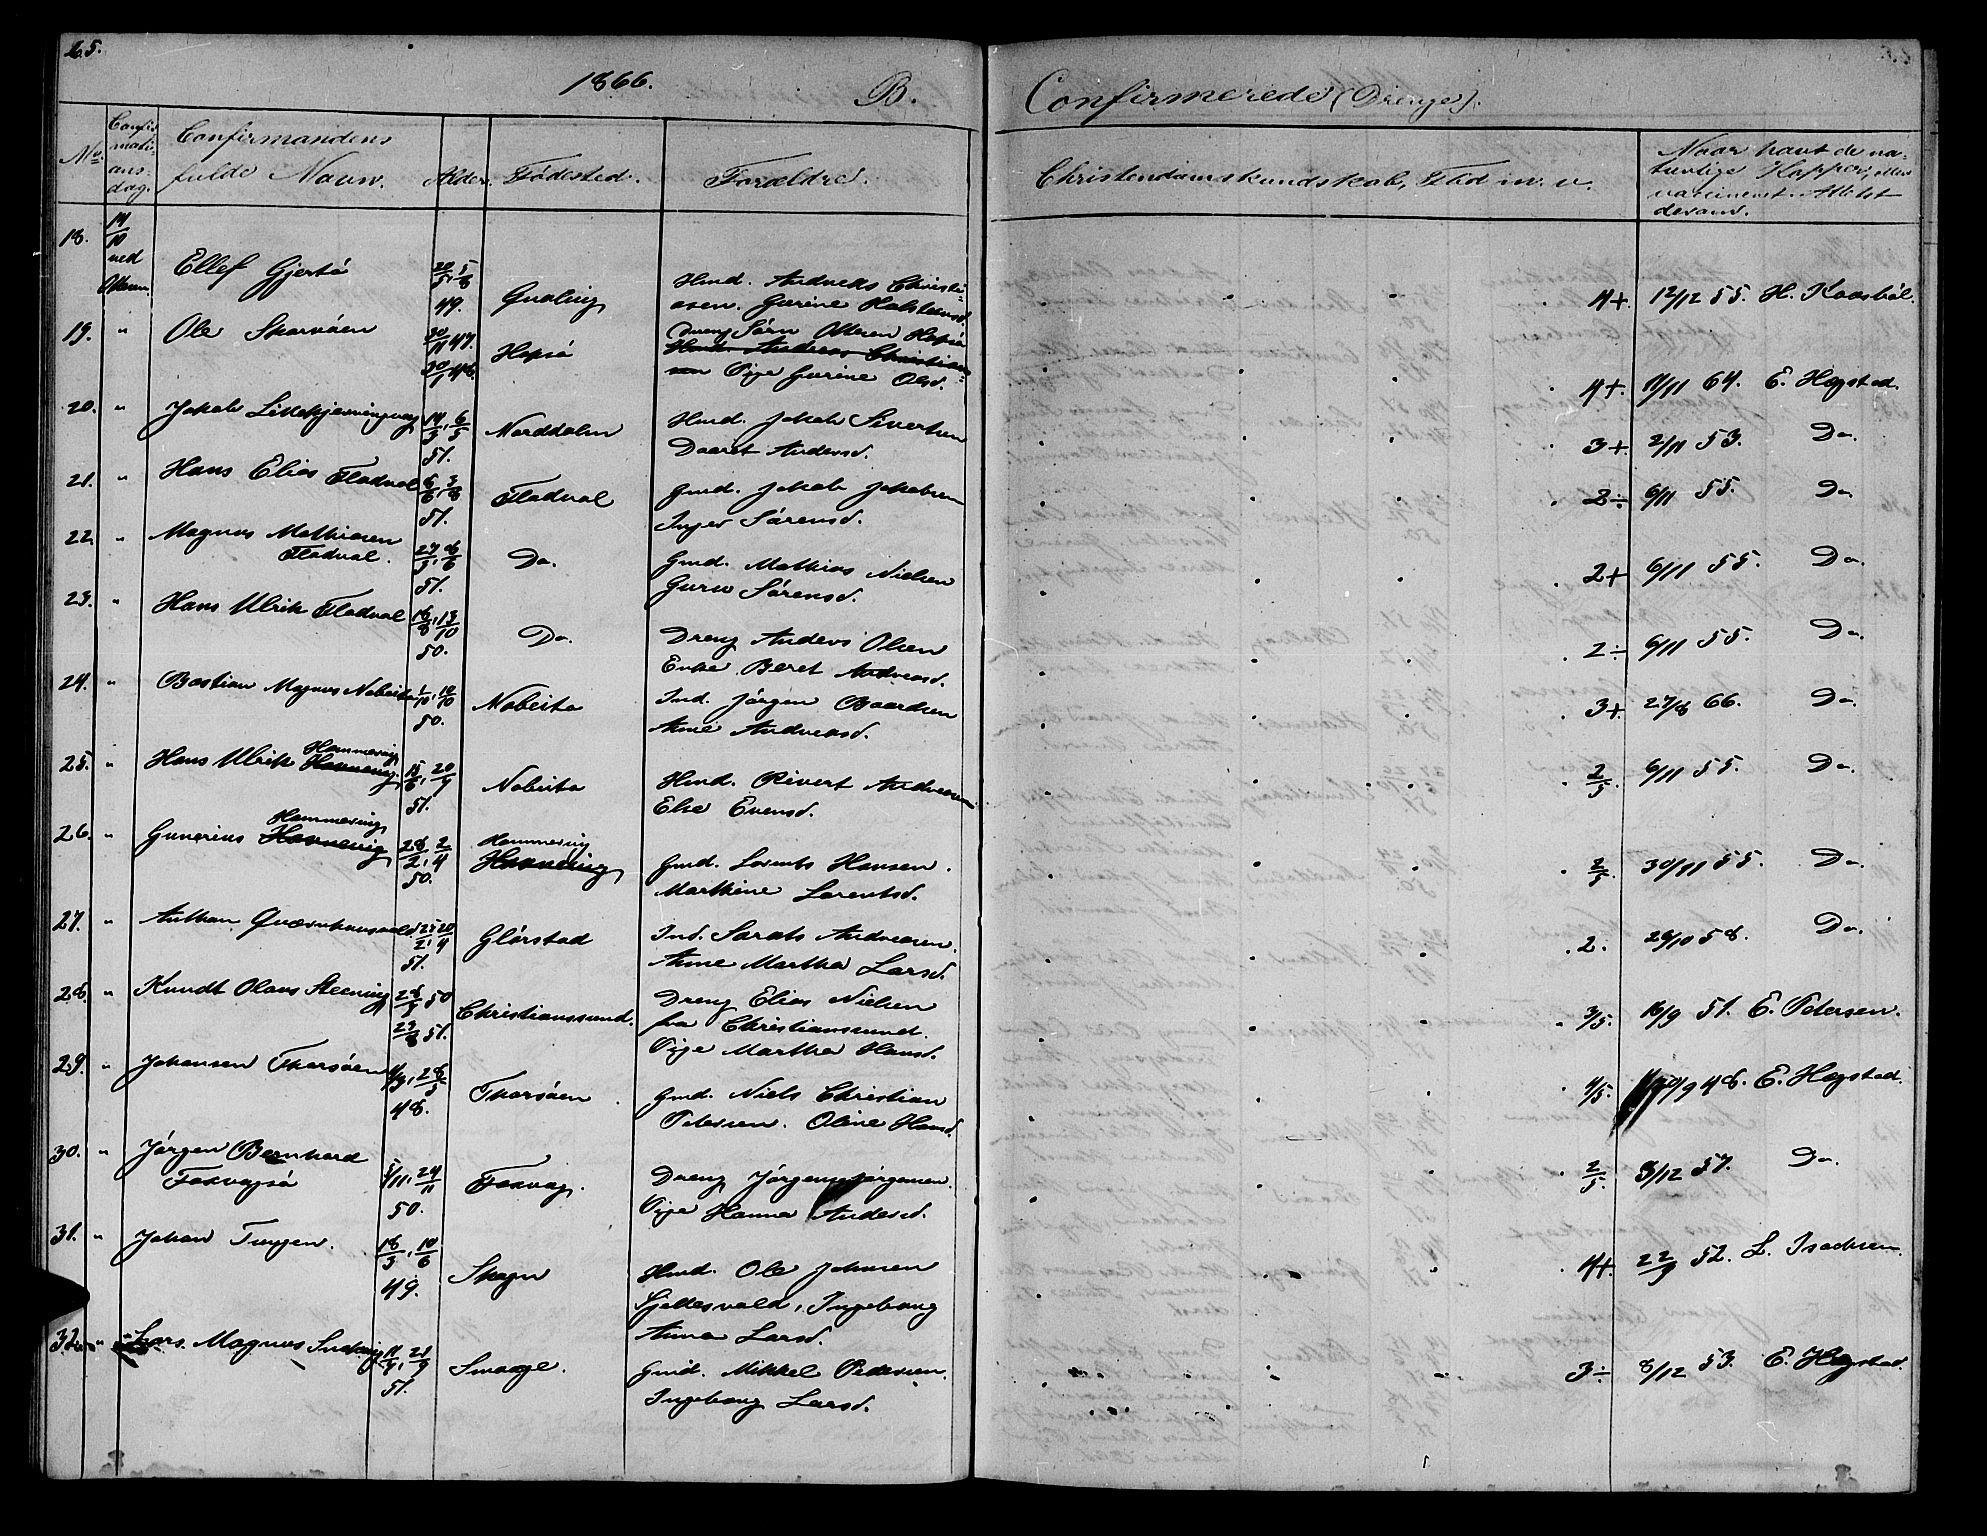 25.
1866.
B.
Confirmerede (Drenge).
No.
Confir-
mati-
ons-
dag.
Confirmandens
fulde Navn.
Alder.
Fødested.
Forældre.
Christendomskundskab, Flid m. v.
Naar havt de na-
turlige Kopper, eller
vaccineret. Attest
derom.
18.
14/10
ved
Otteren.
Ellef Gjertø
20/5, 5/8
49.
Qualing
Hmd. Andreas Christi-
ansen. Gurine Halstensd.
4+
12/12 55. H. Kaasbøl.
19. " Ole Skarvøen
20/11 47.
20/1 48.
Hopsø
Dreng Sørn Otteren Hopsø
Hmd. Andreas Christian-
sen Pige Gurine Olsd.
4+.
11/11 64. E. Hegstad.
20. " Jakob Litlekjerringvaag
14/3, 6/5
51.
Norddalen
Hmd. Jakob Sivertsen
Daaret Andersd.
3+.
2/11 53. Do.
21. " Hans Elias Fladval
6/6, 3/8
51.
Fladval
Gmd. Jakob Jakobsen
Inger Sørensd.
2÷
6/11 55. Do.
22. " Magnus Mathiasen
Fladval.
27/3, 6/6
51.
Do.
Gmd. Mathias Nielsen
Guru Sørensd.
2+
6/11 55. Do.
23. " Hans Ulrik Fladval
18/8, 13/10
50.
Do.
Dreng Anders Olsen
Enke Beret Andreasd.
2÷
6/11 55. Do.
24. " Bastian Magnus Nobeista
1/10, 10/10
50.
Nobeista
Ind. Jørgen Baardsen
Anne Andreasd.
3+.
27/8 66. Do.
25. " Hans Ulrik Havnevig Hammervig
15/6, 20/9
51.
Nobeista
Hmd. Sivert Andreasen
Else Evensd.
2/5.
6/11 55. Do.
26. " Gunerius Havnevig Hammervig
28/2, 2/4
50.
Hammervig
Havnevig
Gmd. Lorents Hansen.
Marthine Lorentsd.
2/5
30/11 55. Do.
27. "
25/2, 20/4
51.
Glørstad
Ind. Andreasen.
Anne Martha Larsd.
2.
28/10 58. Do.
28. " Knudt Olaus Steening
28/3 50
23/8 51.
Christianssund.
Dreng Elias Nielsen
fra Christianssund.
Pige Martha Hansd.
3/5.
16/9 51. E. Petersen.
29. " Johansen Thorsøen
48.
Thorsøen
Gmd. Niels Christian
Petersen. Oline Hansd.
4/5.
20/9 48. E. Hegstad.
30. " Jørgen Bernhard
Foxvagsø
5/11, 24/11
50.
Foxvag.
Dreng Jørgen Jørgensen.
Pige Hanna Andersd.
2/5.
3/12 57. Do.
31. " Johan Tuggen.
18/3, 10/6
49.
Skagn
Hmd. Ole Johnsen
Sjellesvold, Ingeborg
Anna Larsd.
4+.
22/9 52. L. Isachsen.
32. " Lars Magnus
11/7, 21/9
51.
Smaage.
Gmd. Mikkel Pedersen.
Ingeborg Larsd.
3÷
8/12 53. E. Hegstad.